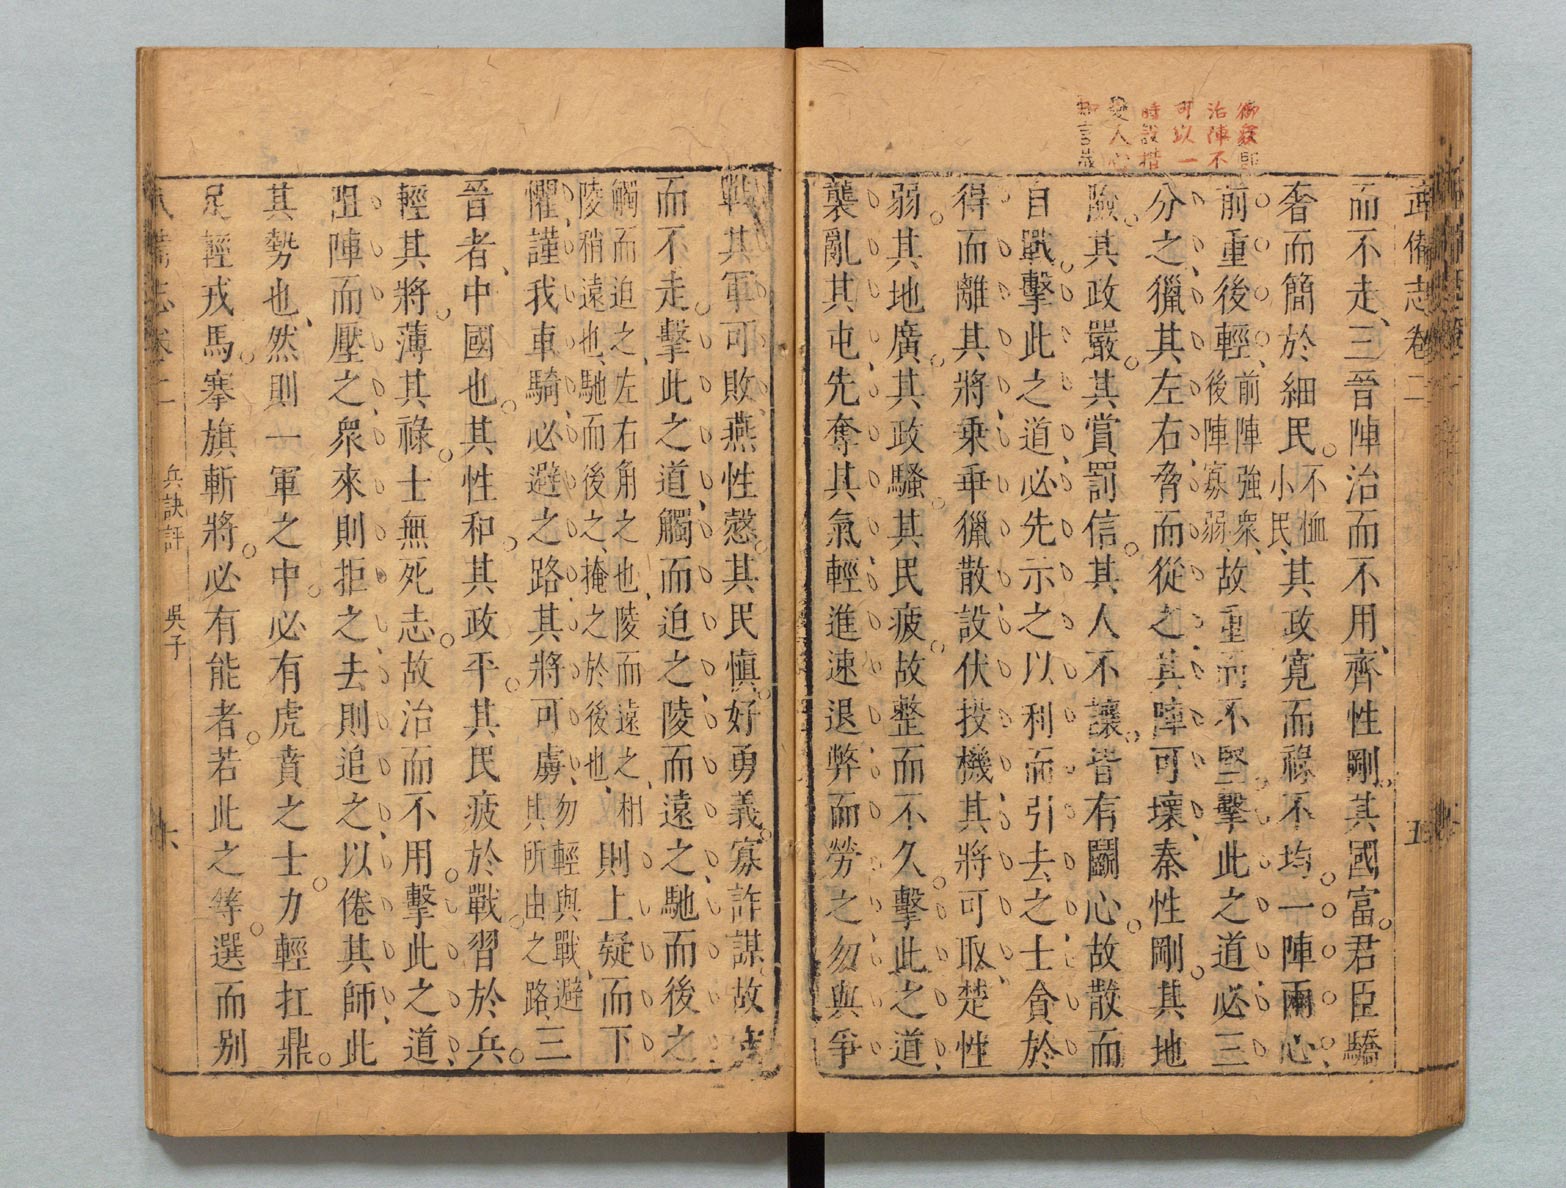 御衆即
治陣不
可以一
時設措
變人心
武備志卷二
五
而不走、三晉陣治而不用、齊性剛。其國富。君臣驕
奢而簡於細民。不恤小民、其政寬而祿不均。一陣兩心、
前重後輕、前陣強衆、後陣寡弱、故重而不堅。擊此之道必三
分之獵其左右脅而從之其陣可壞、秦性剛。其地
險。其政嚴。其賞罰信。其人不讓。皆有鬬心。故散而
自戰。擊此之道、必先示之以利而引去之士貪於
得而離其將、乘乖獵散設伏投機、其將可取、楚性
弱。其地廣。其政騷。其民疲。故整而不久。擊此之道、
襲亂其屯先奪其氣輕進速退弊而勞之、勿與爭
戰其軍可敗、燕性慤。其民慎。好勇義。寡詐謀。故守
而不走。擊此之道、觸而迫之、陵而遠之、馳而後之
觸而迫之、左右角之也、陵而遠之、相
陵稍遠也、馳而後之、掩之於後也、則上疑而下
懼、謹我車騎必避之路、其將可虜、勿輕與戰、避其所由之路、三
晉者、中國也。其性和。其政平。其民疲於戰。習於兵。
輕其將。薄其祿。士無死志。故治而不用。擊此之道、
阻陣而壓之、衆來則拒之、去則追之、以倦其師、此
其勢也、然則一軍之中。必有虎賁之士。力輕扛鼎。
足輕戎馬。搴旗斬將。必有能者。若此之等。選而别
武備志卷二
兵訣評
吳子
六